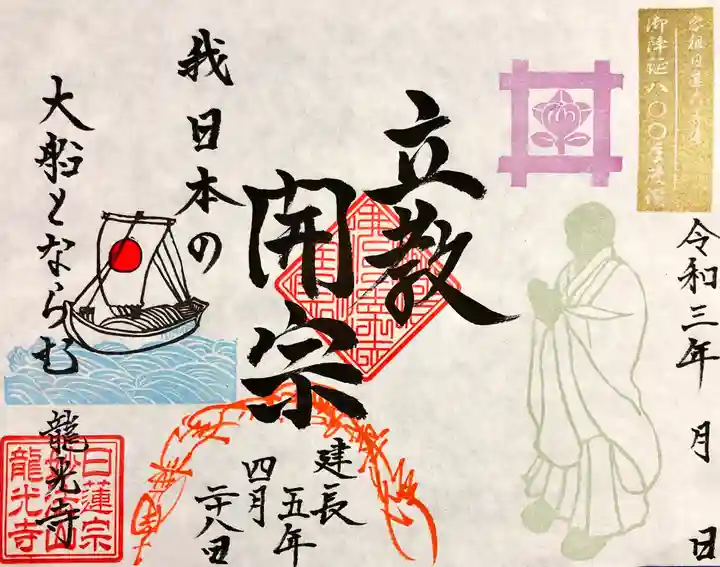 御降誕八〇〇年慶讃
令和三年 月 日
立教
開宗
建長
五年
四月
二十八日
我日本の
大船とならむ
龍光寺
日蓮宗
龍光寺